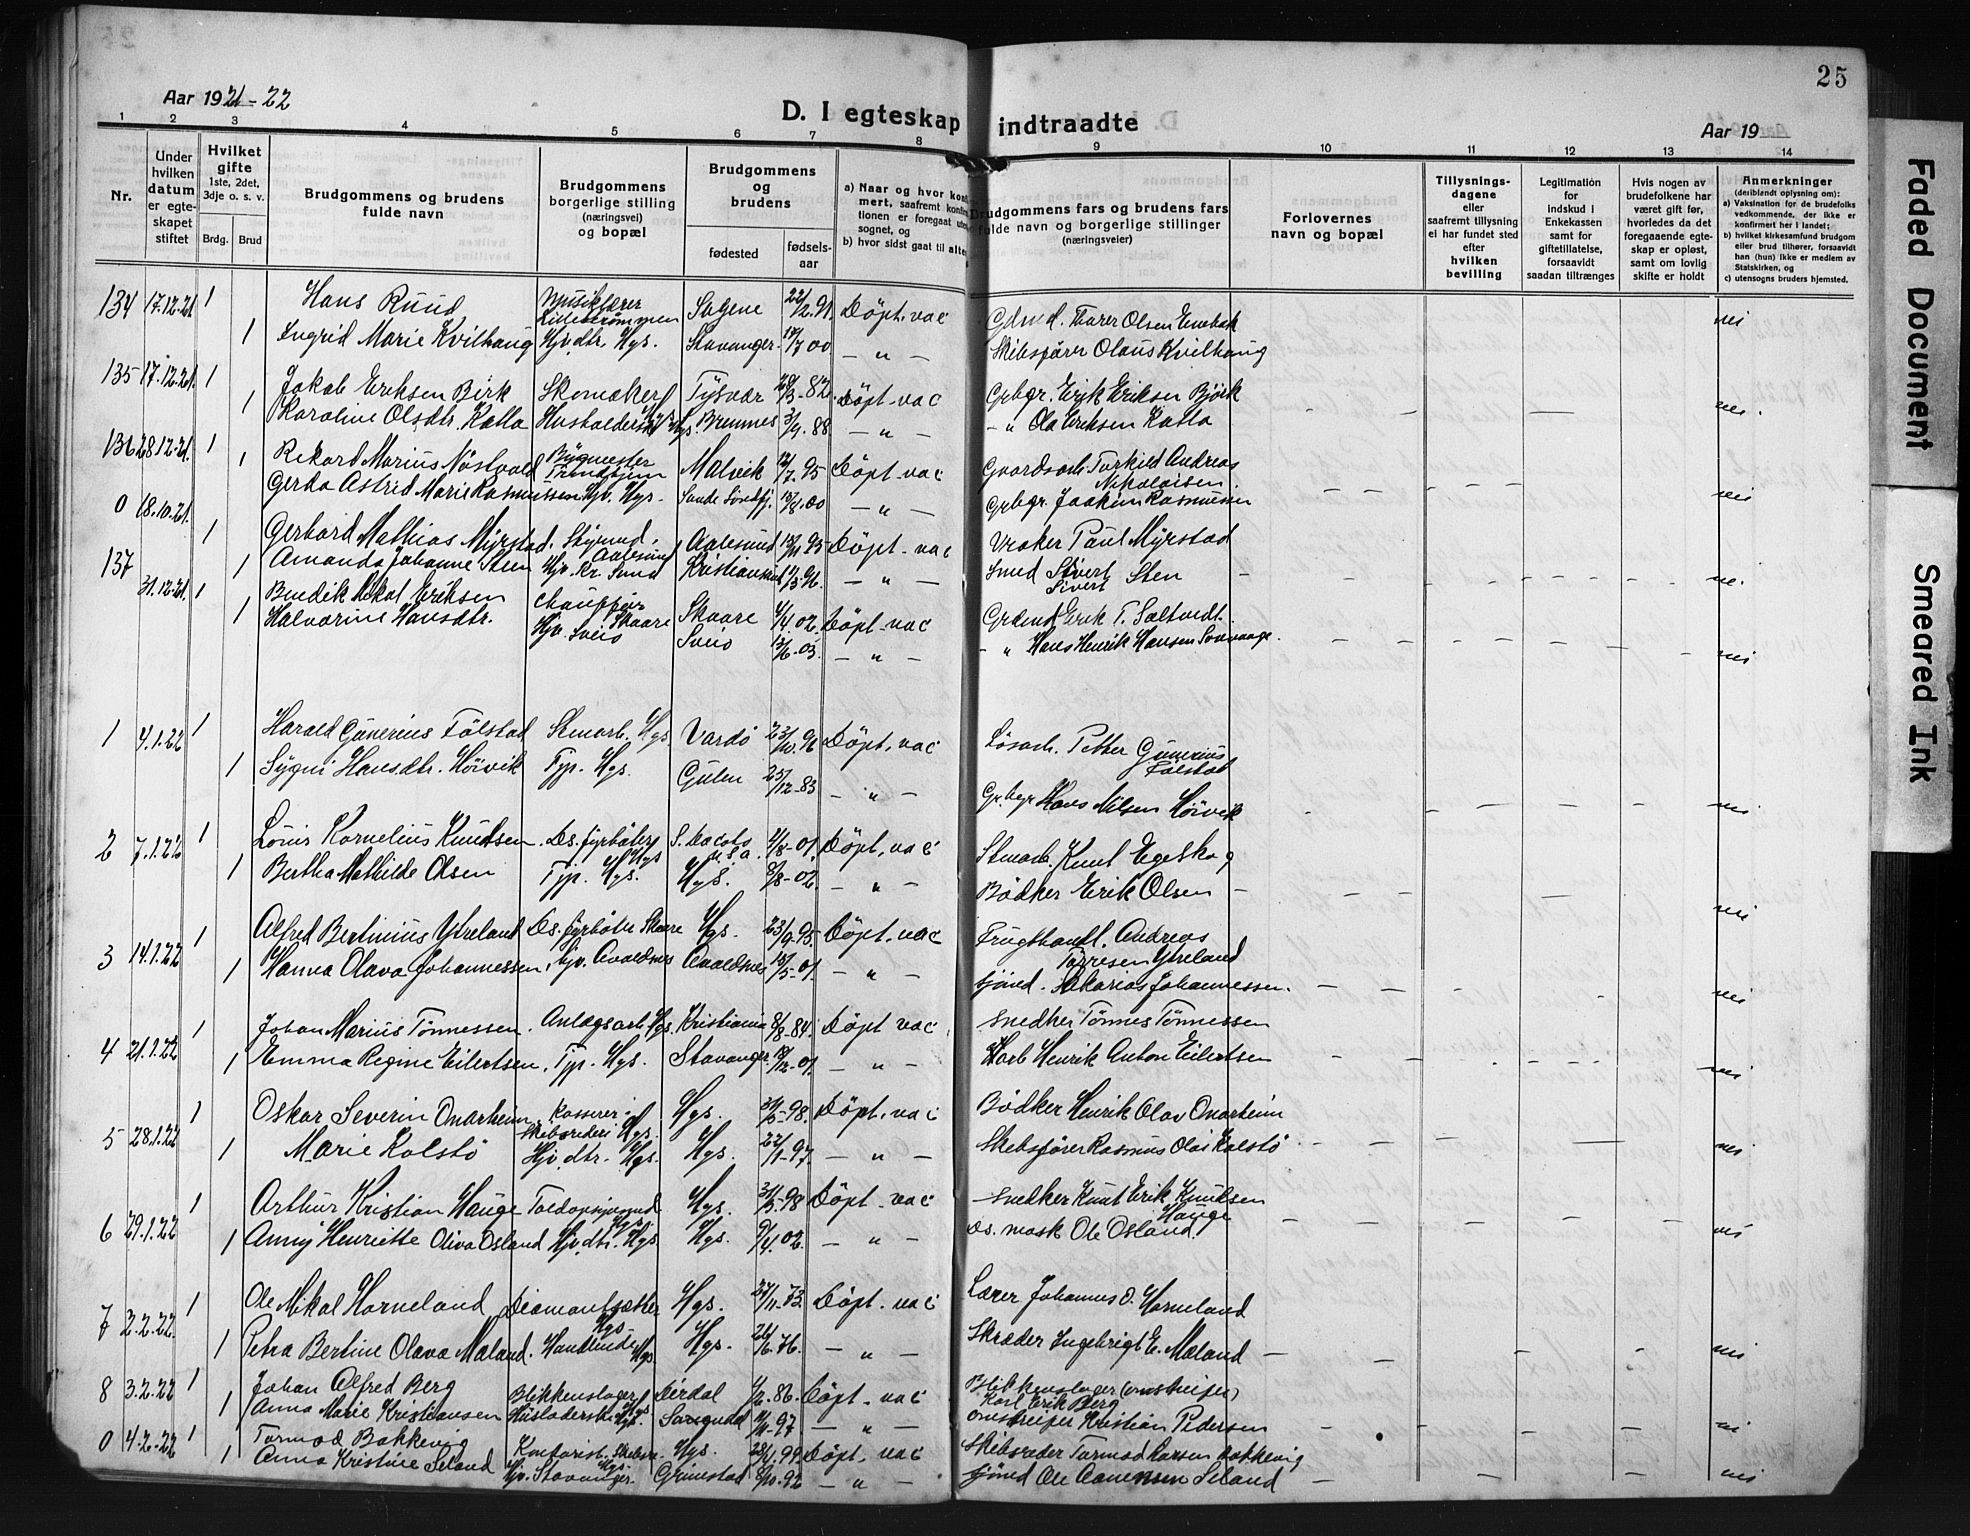 25
Aar 1921-22
D. I egteskap indtraadte
Aar 19
1 2 3 4 5 6 7 8 9 10 11 12 13 14
Nr.
Under hvilken datum er egteskapet stiftet
Hvilket gifte
1ste, 2det, 3dje o. s. v.
Brdg. Brud
Brudgommens og brudens fulde navn
Brudgommens borgerlige stilling (næringsvei) og bopæl
Brudgommens og brudens
fødested fødselsaar
a) Naar og hvor konfirmert, saafremt konfirmationen er foregaat utenfor sognet, og
b) hvor sidst gaat til alters
Brudgommens fars og brudens fars fulde navn og borgerlige stillinger (næringsveier)
Forlovernes navn og bopæl
Tillysningsdagene eller saafremt tillysning ei har fundet sted efter hvilken bevilling
Legitimation for indskud i Enkekassen samt for giftetillatelse, forsaavidt saadan tiltrænges
Hvis nogen av brudefolkene har været gift før, hvorledes da det foregaaende egteskap er opløst, samt om lovlig skifte er holdt
Anmerkninger
(deriblandt oplysning om):
a) Vaksination for de brudefolks vedkommende, der ikke er konfirmert her i landet;
b) hvilket kirkesamfund brudgom eller brud tilhører, forsaavidt han (hun) ikke er medlem av Statskirken, og
c) utensogns bruders hjemsted.
134 17.12.21. 1 Hans Ruud Musiklærer Lillestrømmen 22/2.91. Døpt. vac Gdmd. Thorer Olsen Enebak nei
1 Ingrid Marie Kvilhaug Hjv. dtr. Hgs. Stavanger 17/7 00 — " — Skibsfører Olaus Kvilhaug
135 17.12.21. 1 Jakob Eriksen Birk Skomaker Tysvær 82. Døpt. vac Grbgr. Erik Eriksen Bjørk
1 Karoline Olsdtr. Katla Hgs. Bremnes 3/9. 88 — " — - " Ola Eriksen Katla nei.
136 28.12.21. 1 Rikard Marius Nøstvold Bygmester Trondhjem Malvik 12/7.95 Døpt. vac Gaardsarb. Torkild Andreas Nikolaisen.
1 Gerda Astrid Marie Rasmussen Hjv. Hgs. Sande Søndfj. 13/8.00 — " — Grbgr. Joakim Rasmussen nei
0 18.10.21. 1 Gerhard Mathias Myrstad. Styrmd. Aalesund Aalesund 95 Døpt. vac Vraker Paul Myrstad
137 1 Amanda Johanne Steen Hjv. Kr. Sund Kristiansund 11/3.96. — " — Smed Sivert Sten nei.
Sivert
31.12.21. 1 Bendik Mikal Eriksen Chauffør Skaare Skaare 4/4 02. Døpt. vac Grdmd Erik T. Saltvedt.
1 Halvarine Hansdtr. Hjv. Sveio Sveio 13/6.03. — " — - " Hans Henrik Hansen nei
1 4.1.22 1 Harald Gunerius Følstad Stenarb. Hgs. Vardø 23/10.96 Døpt. vac Løsarb. Petter Gunerius Følstad
1 Sygni Hansdtr. Høivik Tjp. Hgs. Gulen 25/12-83 — " — Gr.bgr Hans Nilsen Høivik nei
2 7.1.22 1 Louis Kornelius Knudsen. Ds. fyrbøter Hgs S. Dacota U.S.A. 4/8-01. Døpt. vac Stenarb. Knut Egeskog
1 Bertha Mathilde Olsen Tjp. Hgs. Hgs. 8/8-02. — " — Bødker Erik Olsen nei
3 14.1.22 1 Alfred Bertinius Ytreland Ds. fyrbøter Skaare Hgs. 23/9.95. Døpt. vac Frugthandl. Andreas Torresen Ytreland
1 Hanna Olava Johannessen. hjv. Avaldsnes Avaldsnes 15/5-01. — " — Sjømd. Sakarias Johannessen. nei
4 21.1.22 1 Johan Marius Tønnessen. Anlægsarb Hgs. Kristiania 8/8.84. Døpt vac Snedker Tønnes Tønnessen
1 Emma Regine Eilertsen. Tjp. Hgs. Stavanger 18/12.01. — " — Harb Henrik Anton Eilertsen nei
5 28.1.22 1 Oskar Severin Onarheim Kasserer i Skibsrederi Hgs. Hgs. 98. Døpt. vac Bødker Henrik Olav Onarheim
1 Marie Kolstø Hjv. dtr. Hgs. Hgs. 22/1-97. — " — Skibsfører Rasmus Olai Kolstø nei
6 29.1.22 1 Arthur Kristian Hauge Toldopsynsmd Hgs. Hgs. 98 Døpt. vac Snedker Knut Erik Knudsen Hauge
1 Anny Henriette Oliva Osland Hjv. dtr. Hgs Hgs. 9/4.02. — " — Ds. mask Ole Osland. nei
7 2.2.22. 1 Ole Mikal Horneland Diamantsætter Hgs. Hgs. 27/11-73. Døpt. vac Lærer Johannes O. Horneland
1 Petra Bertine Olava Mæland. Handlende Hgs Hgs. 26/6.76. — " — Skræder Ingebrigt E. Mæland nei
8 3.2.22 1 Johan Alfred Berg Blikkenslager Dirdal 86. Døpt. vac Blikkenslager (omstreifer) Karl Erik Berg
1 Anna Marie Kristiansen Husholderske Hgs. 97 — " — omstreifer Kristian Pedersen nei
0 4.2.22 1 Tormod Bakkevig Kontorist Hgs. Hgs. 28/4.99. Døpt. vac Skibsreder Tormod Larsen Bakkevig
1 Anna Kristine Seland Hjv. Stavanger. Grimstad 8/10.92 — " — Sjømd Ole Aanensen Seland nei
Faded Document
Smeared Ink